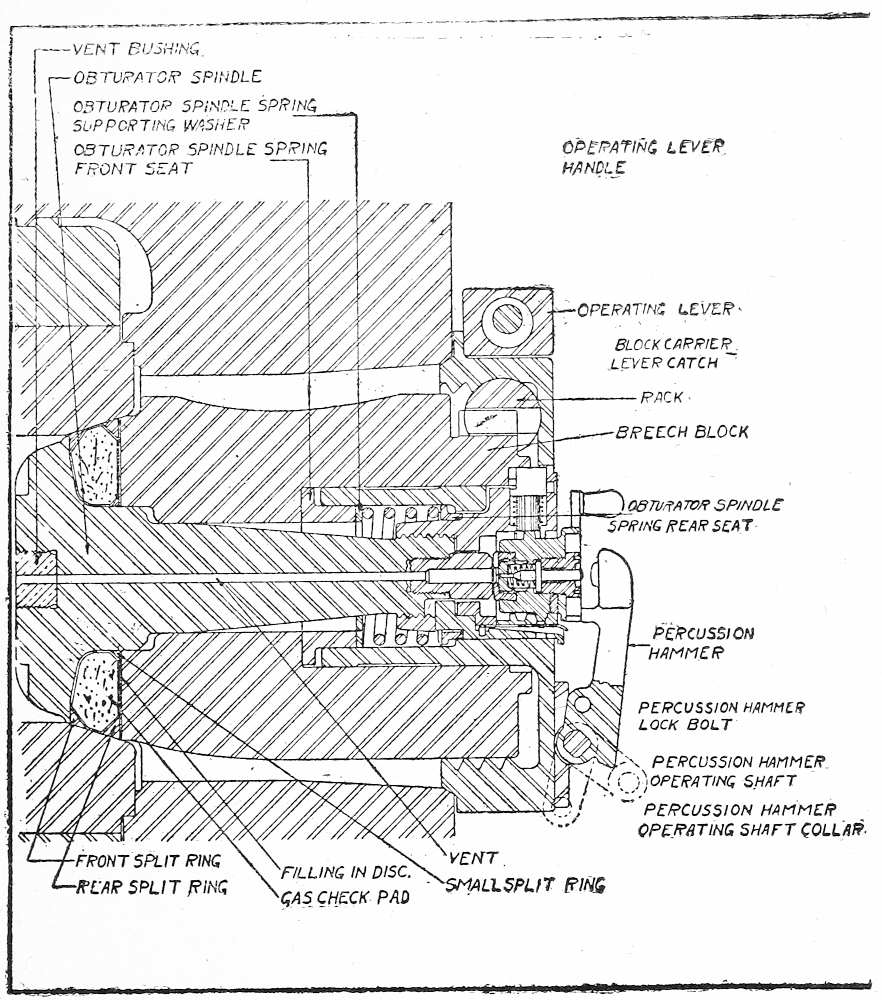 VENT BUSHING.
OBTURATOR SPINDLE
OBTURATOR SPINDLE SPRING
SUPPORTING WASHER
OBTURATOR SPINDLE SPRING
FRONT SEAT
OPERATING LEVER
HANDLE
OPERATING LEVER.
BLOCK CARRIER
LEVER CATCH
RACK.
BREECH BLOCK
OBTURATOR SPINDLE
SPRING REAR SEAT.
PERCUSSION
HAMMER
PERCUSSION HAMMER
LOCK BOLT
PERCUSSION HAMMER
OPERATING SHAFT
PERCUSSION HAMMER
OPERATING SHAFT COLLAR.
VENT.
SMALL SPLIT RING
FILLING IN DISC.
GAS CHECK PAD
FRONT SPLIT RING
REAR SPLIT RING